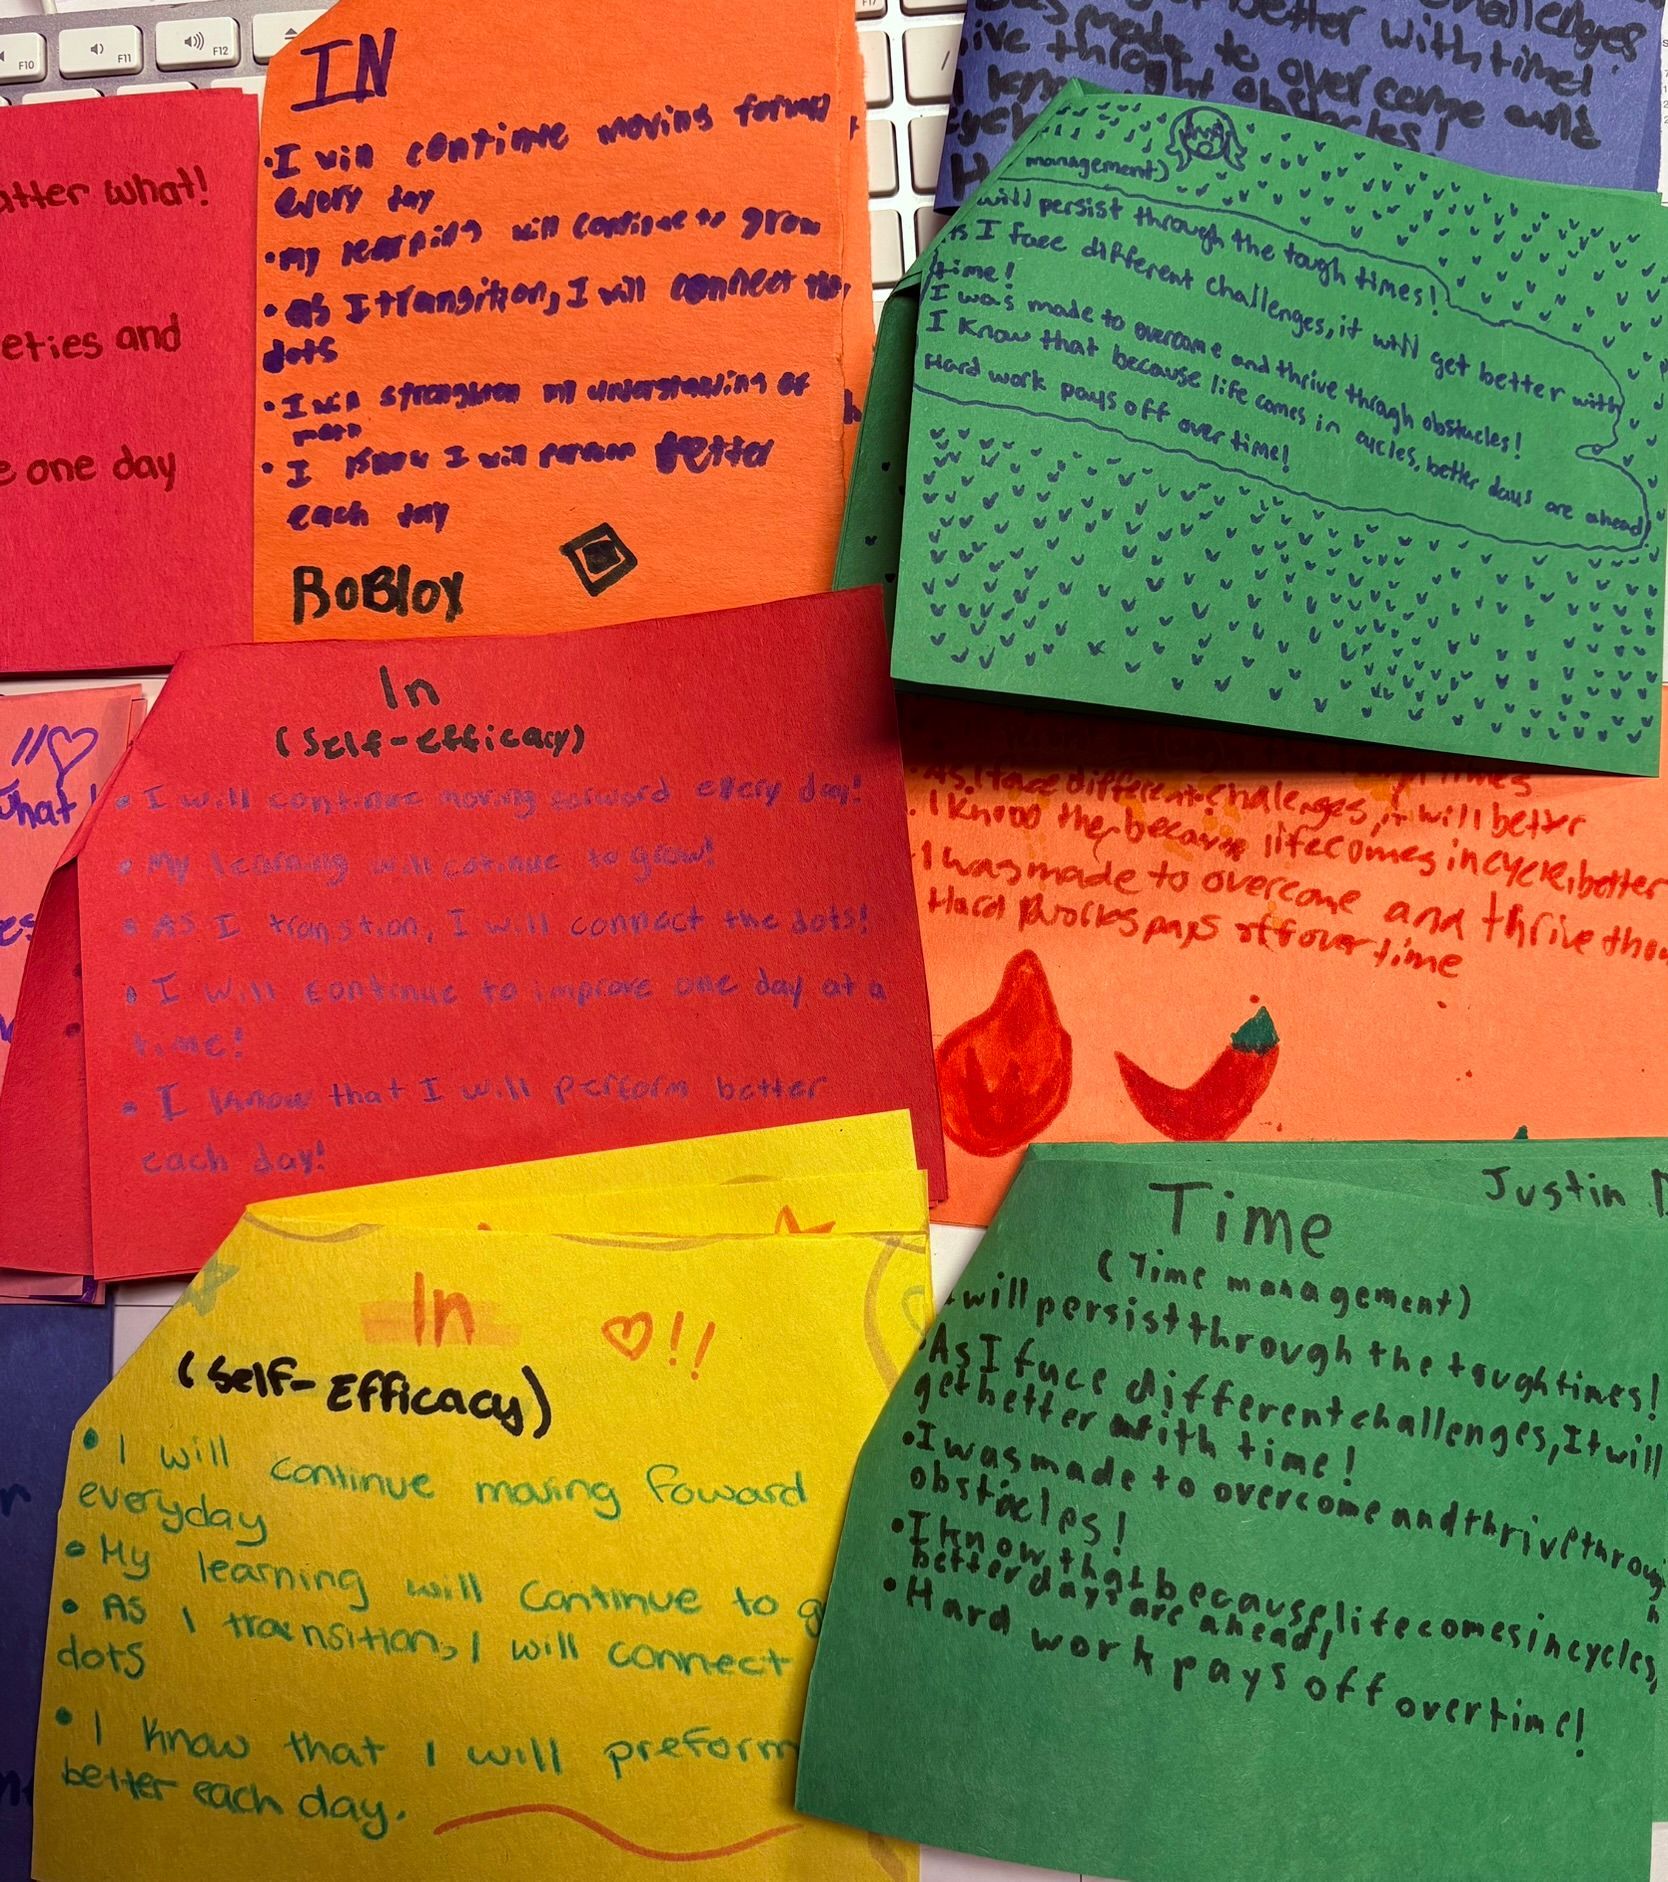 F10
F11
F12
F17
/
atter what!
eties and
e one day
IN
•I will continue moving forward
every day
•My learning will continue to grow
•as I transition, I will connect the
dots
•I will strengthen my understanding of
math
•I know I will perform better
each day
RoBlox
challenges
better with time!
was made to overcome and
ive throught obstacles!
I know
cycl
H
management)
will persist through the tough times!
As I face different challenges, it will get better with
time!
I was made to overcome and thrive through obstacles!
I know that because life comes in cycles, better days are ahead!
Hard work pays off over time!
In
(Self-efficacy)
• I will continue moving forward every day!
• My learning will cotinue to grow!
• AS I transtion, I will connact the dots!
• I will continue to improve one day at a
time!
• I know that I will perform better
each day!
what!
es
times
.As I face different chalenges, it will better
. I know the because life comes in cycle, better
I was made to overcome and thrive thou
Hard works pays off over time
In
(Self-Efficacy)
• I will continue moving foward
everyday
• My learning will continue to g
• AS I transition, I will connect
dots
• I know that I will preform
better each day.
Justin
Time
(Time management)
will persist through the tough times!
•As I face different challenges, It will
get better with time!
•I was made to overcome and thrive through
obstacles!
•I know that because life comes in cycles,
better days are ahead!
•Hard work pays off over time!